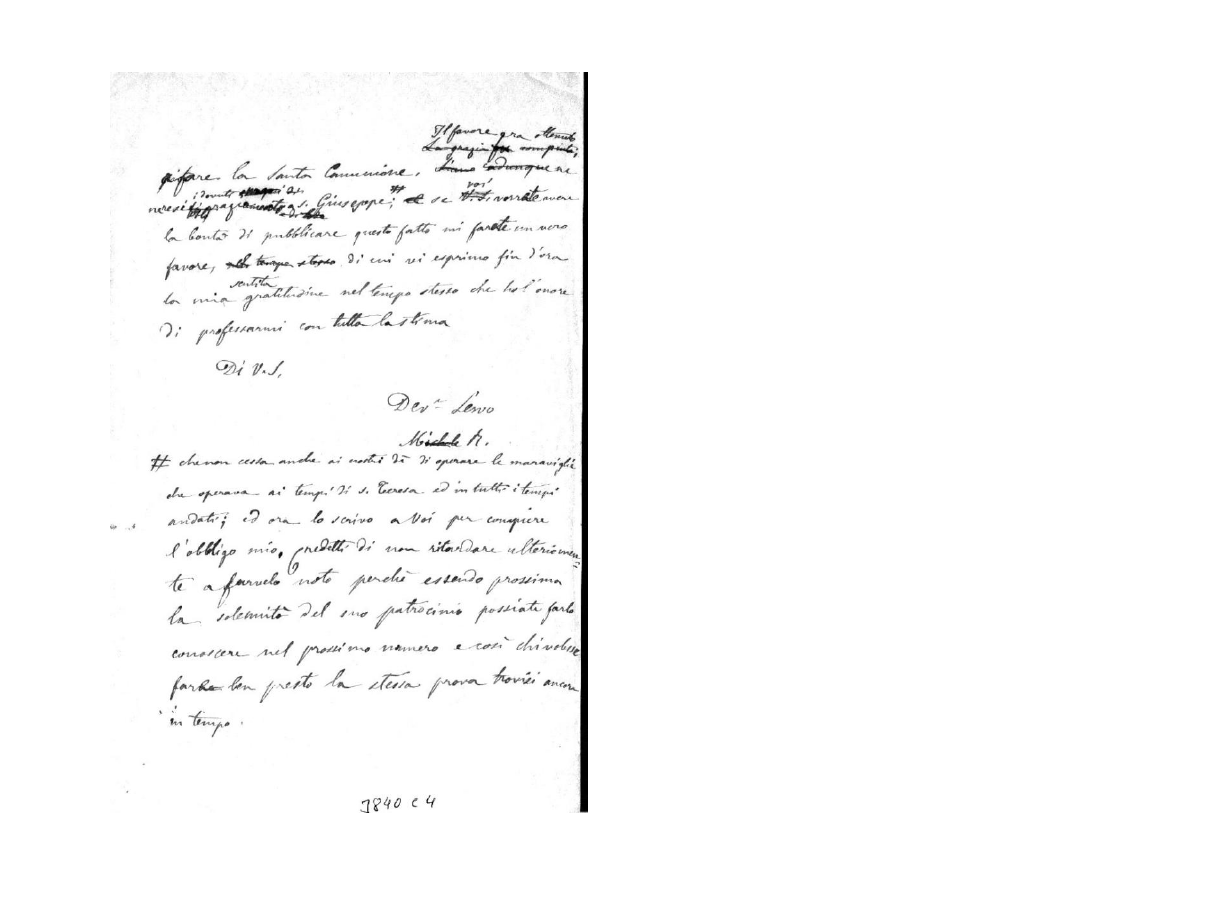 Il favore era ottenuto
La grazia fu compiuta;
rifare la Santa Comunione. Siano adunque ne
i dovuti voi
neresi ringraziamenti a s. Giuseppe; # e se V.S. vorrete avere
la bontà di pubblicare questo fatto mi farete un vero
favore, nel tempo stesso di cui vi esprimo fin d'ora
sentita
la mia gratitudine nel tempo stesso che ho l'onore
di professarmi con tutta la stima
Di V.S.
Dev.º Servo
Michele R.
# che non cessa anche ai nostri dì di operare le maraviglie
che operava ai tempi di s. Teresa ed in tutti i tempi
andati; ed ora lo scrivo a Voi per compiere
l'obbligo mio. Credetti di non ritardare ulteriormen=
te a farvelo noto perchè essendo prossima
la solennità del suo patrocinio possiate farlo
conoscere nel prossimo numero e così chi volesse
farne ben presto la stessa prova trovisi ancora
in tempo.
3840 C 4